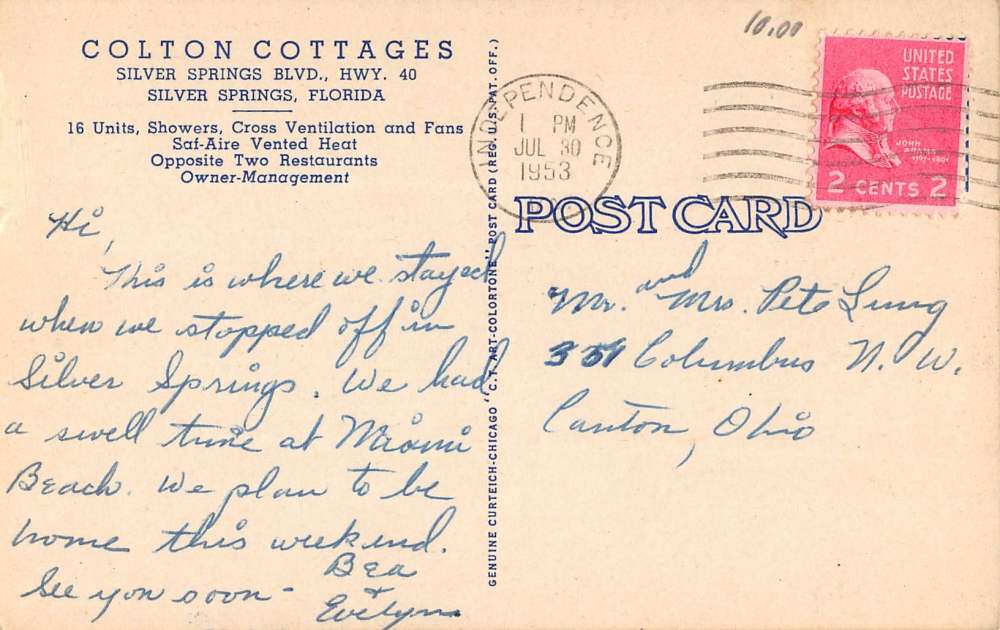 COLTON COTTAGES
SILVER SPRINGS BLVD., HWY. 40
SILVER SPRINGS, FLORIDA
16 Units, Showers, Cross Ventilation and Fans
Saf-Aire Vented Heat
Opposite Two Restaurants
Owner-Management
Hi,
This is where we stayed
when we stopped off in
Silver Springs. We had
a swell time at Miami
Beach. We plan to be
home this weekend.
See you soon -
Bea
+
Evelyn
GENUINE CURTEICH-CHICAGO "C.T. ART-COLORTONE" POST CARD (REG. U.S. PAT. OFF.)
10.00
INDEPENDENCE
1 PM
JUL 30
1953
UNITED
STATES
POSTAGE
JOHN
ADAMS
2 CENTS 2
POST CARD
Mr. and Mrs. Pete Lung
Columbus N.W.
Canton, Ohio